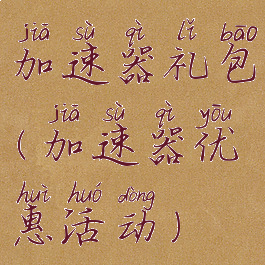 jiā sù qì lǐ bāo
加速器礼包
jiā sù qì yōu
(加速器优
huì huó dòng
惠活动)